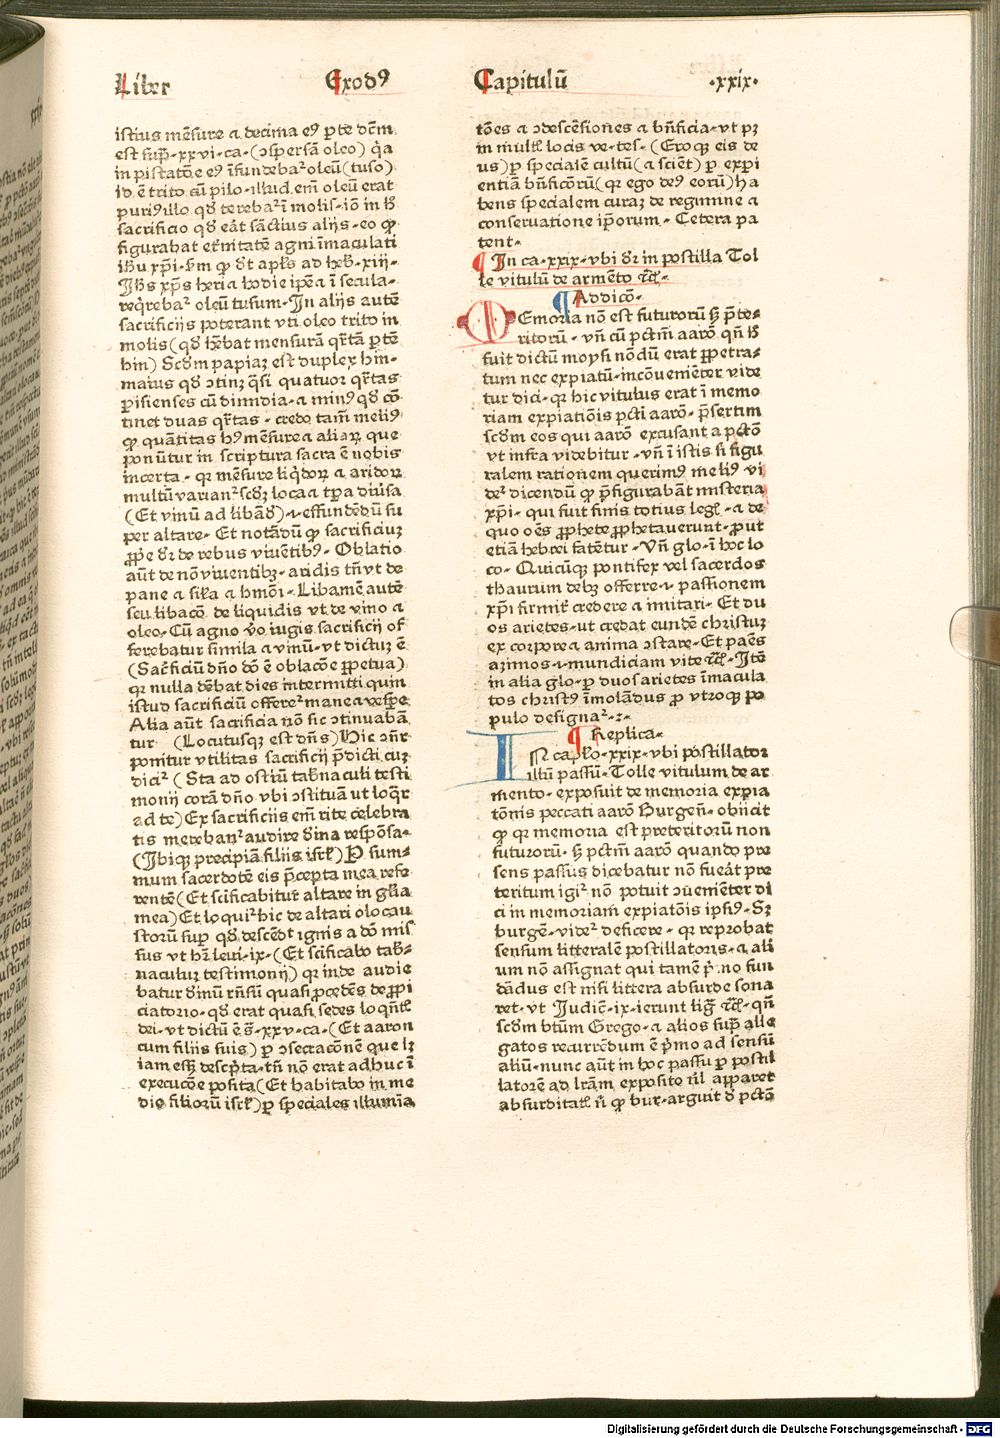 Liber Exodꝰ Capitulū ·xxix·
istius mēsure a decima eꝰ ꝑte dc̄m
est sup̄·xxvi·ca·(ↄspersā oleo) q̇a
in pistatōe eꝰ īfundebaᷣ oleū(tuso)
id ē trito cū pilo·illud em̄ oleū erat
puriꝰ illo qd̓ terebaᷣ ī molis·iō in h̓
sacrificio qd̓ eāt sāctius alijs·eo ꝙ
figurabat et̓nitatē agni īmaculati
ihū xp̄i·ẜm ꝙ dt̄ apl̓s ad heb̓·xiij·
Jhs xp̄s heri a hodie ip̄e a ī secula·
reqͥrebaᷣ oleū tusum·In alijs autē
sacrificijs poterant vti oleo trito in
molis(qd̓ hēbat mensurā qrͣtā ꝑtē
hin) Scd̓m papiaꝫ est duplex hin·
maius qd̓ ↄtinꝫ qͣsi quatuor qrͣtas
ꝑisienses cū dimidia·a minꝰ qd̓ cō
tinet duas qrͣtas·credo tam̄ meliꝰ
ꝙ quātitas hꝰ mēsure a aliaꝝ que
ponūtur in scriptura sacra ē nobis
incerta·qꝛ mēsure liqͥdoꝝ a aridoꝝ
multū varianᷣ scd̓ꝫ loca a tꝑa diūsa
(Et vinū ad libād̓)·i·effundēdū su
per altare·Et notādū ꝙ sacrificiuꝫ
ꝓpͥe dꝛ de rebus viuētibꝰ·Oblatio
aūt de nō viuentibꝫ·aridis tn̄ vt de
pane a sil̓a a hmōi·Libamē autē
seu libacō de liquidis vt de vino a
oleo·Cū agno v̓o iugis sacrificij of
ferebatur simila a vinū·vt dictuꝫ ē
(Sac̓ficiū dn̄o dō ē oblacōe ꝑpetua)
qꝛ nulla dēbat dies intermitti quin
istud sacrificiū offereᷣ mane a vespe
Alia aūt sacrificia nō sic ↄtinuabā
tur (Locutusqꝫ est dn̄s) Hic ↄn̄r
ponitur vtilitas sacrificij p̄dicti cuꝫ
diciᷣ (Sta ad ostiū tab̓naculi testi
monij corā dn̄o vbi ↄstituā ut loqͣr
ad te) Ex sacrificiis em̄ rite celebra
tis merebanᷣ audire diuina respōsa·
(Jbiqꝫ precipiā filiis isrl̓) P sum·
mum sacerdotē eis p̄cepta mea refe
rentē(Et scificabitur altare in gl̓ia
mea) Et loquiᷣ hic de altari olocau
storū sup qd̓ descēdt ignis a dō mis
sus vt hꝛ leui·ix·(Et scificabo tab̓·
naculuꝫ testimonij) qꝛ inde audie
batur diuinū rn̄sū quasi ꝓcedēs de ꝓpi
ciatorio·qd̓ erat quasi sedes loqn̄tꝭ
dei·vt dictū ē s̄·xxv·ca·(Et aaron
cum filiis suis) ꝑ ↄsecracōnē que lꝫ
iam essꝫ desc̓pta·tn̄ nō erat adhuc ī
execucōe posita(Et habitabo in me
dio filiorū isrl̓) ꝑ speciales illumīa
tōes a ↄdescēsiones a bn̄ficia·vt pꝫ
in multꝭ locis ve·tes·(Eroqꝫ eis de
us) ꝑ specialē cultū(a sciēt) ꝑ expi
entiā bn̄ficōrū(qꝛ ego deꝰ eorū) ha
bens specialem curaꝫ de regimine a
conseruatione ip̄orum·Cetera pa
tent·
¶ In ca·xxix·vbi dꝛ in postilla Tol
le vitulū de armēto ⁊cꝭ·
¶ Addicō·
Memoria nō est futurorū ẜ p̄te·
ritorū·vn̄ cū pctm̄ aarō qn̄ h̓
fuit dictū moysi nōdū erat ꝑpetra·
tum nec expiatū·incōuemēter vide
tur dici·qꝛ hic vitulus erat ī memo
riam expiatiōis pcti aarō·p̄sertim
scd̓m eos qui aarō excusant a pctō
vt infra videbitur·vn̄ ī istis si figu
ralem rationem querimꝰ meliꝰ vi
deᷣ dicendū ꝙ p̄figurabāt misteria
xp̄i·qui fuit finis totius legꝭ·a de
quo oēs ꝓphete ꝓphetauerunt·ꝓut
etiā hebrei fatētur·Vn̄ glo·ī hoc lo
co·Quicūqꝫ pontifex vel sacerdos
thaurum debꝫ offerre·i·passionem
xp̄i firmit̓ credere a imitari·Et du
os arietes·ut credat eundē christuꝫ
ex corpore a anima ↄstare·Et paēs
azimos·i·mundiciam vite ⁊cꝭ·Itē
in alia glo·ꝑ duos arietes īmacula
tos christꝰ īmolādus ꝑ vtroqꝫ po
pulo designaᷣ·:·
¶ Replica·
IN capl̓o·xxix·vbi postillator
illū passū·Tolle vitulum de ar
mento·exposuit de memoria expia
tōnis peccati aarō Burgen̄·obiicit
ꝙ qꝛ memoria est preteritorū non
futurorū·ẜ pctm̄ aarō quando pre
sens passus dicebatur nō fueāt pre
teritum igiᷣ nō potuit ↄuemēter di
ci in memoriam expiatōis ipsiꝰ·Sꝫ
burgē·videᷣ deficere·qꝛ reprobat
sensum litteralē postillatoris·a ali
um nō assignat qui tamē p̄·no fun
dādus est nisi littera absurde sona
ret·vt Judic̄·ix·ierunt lig̓ ⁊cꝭ·qn̄
scd̓m btūm Grego·a alios sup̄ alle
gatos recurrēdum ē p̄mo ad sensū
aliū·nunc aūt in hoc passu ꝑ postil
latorē ad lr̄am exposito nil apparet
absurditatꝭ n̄ ꝙ bur·arguit d̓ pctō
Digitalisierung gefördert durch die Deutsche Forschungsgemeinschaft - DFG